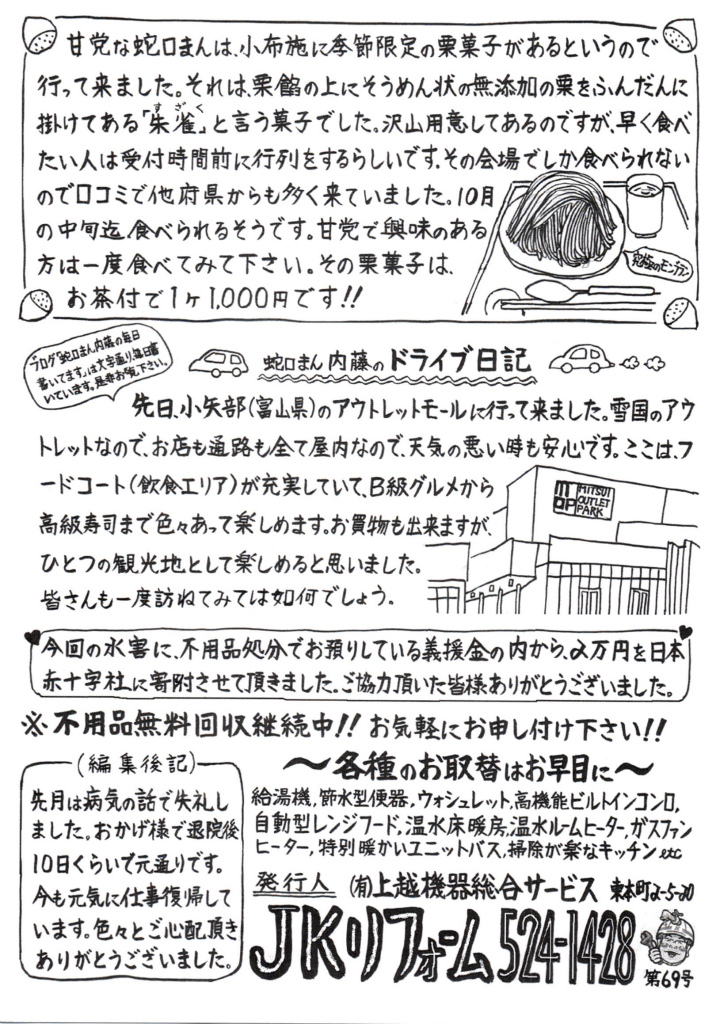 甘党な蛇口まんは、小布施に季節限定の栗菓子があるというので
行って来ました。それは、栗餡の上にそうめん状の無添加の栗をふんだんに
掛けてある「朱雀」と言う菓子でした。沢山用意してあるのですが、早く食べ
すざく
たい人は受付時間前に行列をするらしいです。その会場でしか食べられない
ので口コミで他府県からも多く来ていました。10月
の中旬迄食べられるそうです。甘党で興味のある
方は一度食べてみて下さい。その栗菓子は、
お茶付で1ヶ1,000円です!!
究極のモンブラン
ブログ「蛇口まん内藤の毎日
書いてます」は文字通り、毎日書
いています。是非お覧下さい。
蛇口まん内藤のドライブ日記
先日、小矢部(富山県)のアウトレットモールに行って来ました。雪国のアウ
トレットなので、お店も通路も全て屋内なので、天気の悪い時も安心です。ここは、フ
ードコート(飲食エリア)が充実していて、B級グルメから
高級寿司まで色々あって楽しめます。お買物も出来ますが、
ひとつの観光地として楽しめると思いました。
皆さんも一度訪ねてみては如何でしょう。
MOP
MITSUI
OUTLET
PARK
今回の水害に、不用品処分でお預りしている義援金の内から、2万円を日本
赤十字社に寄附させて頂きました。ご協力頂いた皆様ありがとうございました。
※不用品無料回収継続中!! お気軽にお申し付け下さい!!
(編集後記)
先月は病気の話で失礼し
ました。おかげ様で退院後
10日くらいで元通りです。
今も元気に仕事復帰して
います。色々とご心配頂き
ありがとうございました。
〜各種のお取替はお早目に〜
給湯機,節水型便器,ウォシュレット,高機能ビルトインコンロ,
自動型レンジフード,温水床暖房,温水ルームヒーター,ガスファン
ヒーター,特別暖かいユニットバス,掃除が楽なキッチンetc
発行人 (有)上越機器総合サービス 東本町2-5-20
JKリフォーム 524-1428
第69号